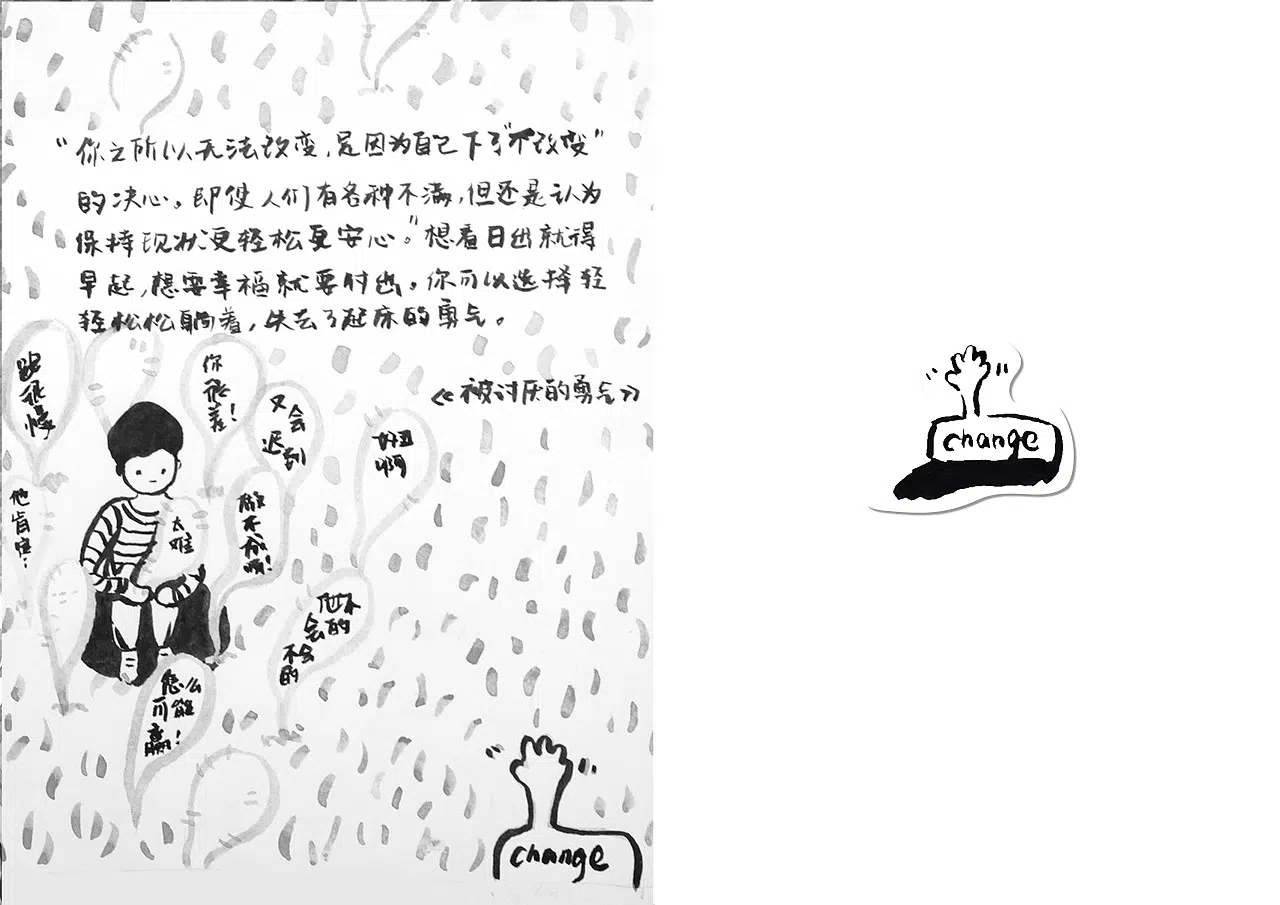 “你之所以无法改变，是因为自己下了“不改变”
的决心。即使人们有各种不满，但还是认为
保持现状更轻松更安心。”想看日出就得
早起，想要幸福就要付出。你可以选择轻
轻松松躺着，失去了起床的勇气。
《被讨厌的勇气》
跑很慢
你很差！
又会
迟到
好丑
啊
他肯定！
太难
做不成啊！
他不
会的
不会
的
怎么
可能
赢！
change
change